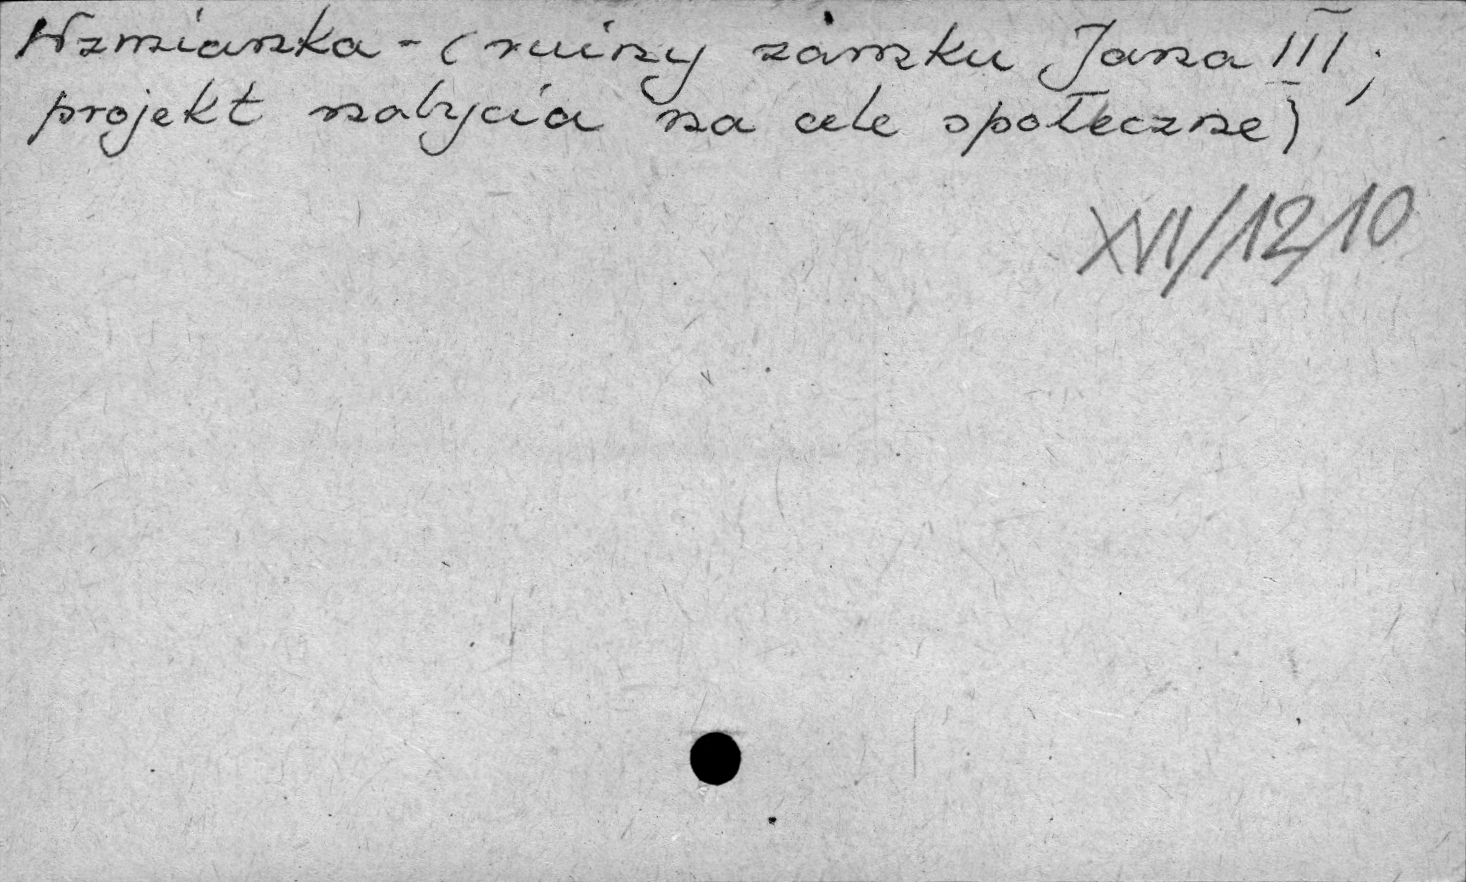 Wzmianka - (ruiny zamku Jana III;
projekt nabycia na cele społeczne)
XVI/12/10